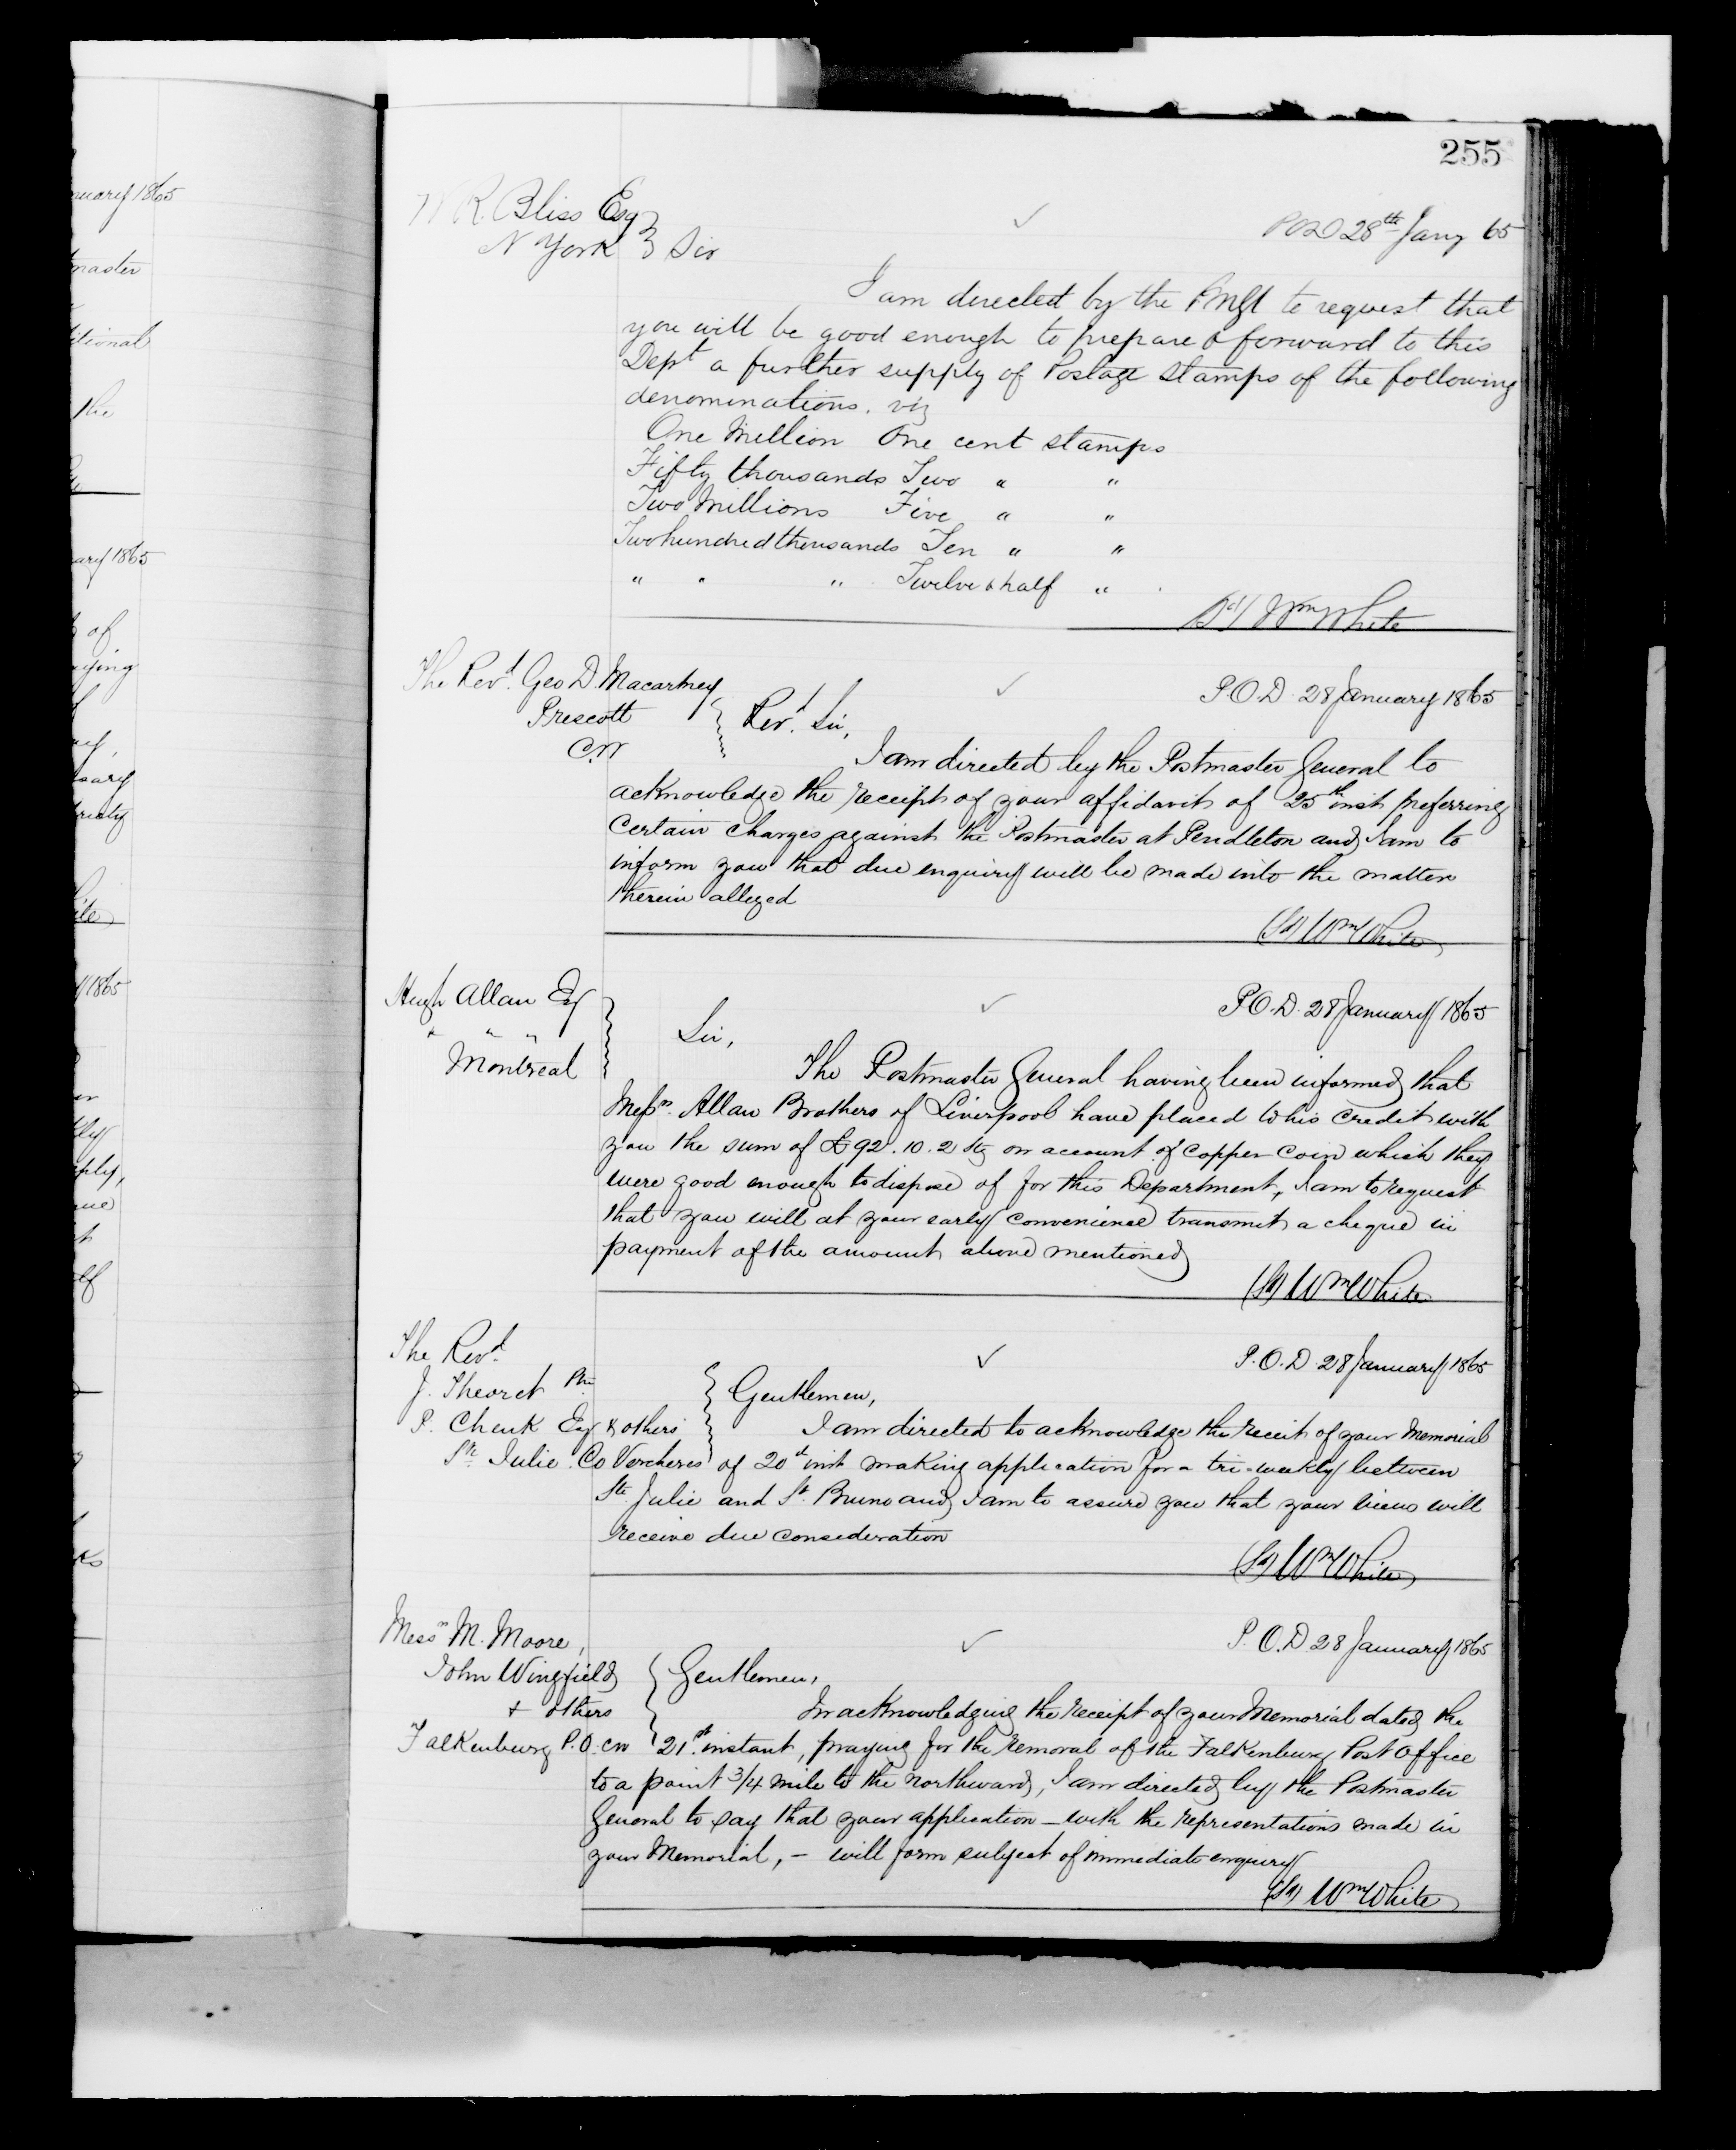 255
W R. Bliss Esq
N York } Sir
POD 28th Jany 65
I am directed by the PMGl to request that
you will be good enough to prepare & forward to this
Dept a further supply of Postage Stamps of the following
denominations. viz
One Million One cent stamps
Fifty thousands Two " "
Two Millions Five " "
Two hundred thousands Ten " "
" " " Twelve & half "
(Sd) Wm White
The Revd. Geo D. Macartney
Prescott
C.W
P.O.D. 28 January 1865
Revd. Sir,
I am directed by the Postmaster General to
acknowledge the receipt of your affidavit of 25th inst preferring
certain charges against the Postmaster at Pendleton and I am to
inform you that due enquiry will be made into the matter
therein alleged
(Sd) Wm White
Hugh Allan Esq
" " "
Montreal
P.O.D. 28 January 1865
Sir,
The Postmaster General having been informed that
Messrs. Allan Brothers of Liverpool have placed to his credit with
you the sum of £92.10.2 Stg on account of copper coin which they
were good enough to dispose of for this Department, I am to request
that you will at your early convenience transmit a cheque in
payment of the amount above mentioned
(Sd) Wm White
The Revd.
J. Theoret
P. Chenk Esq & others
Ste Julie Co Vercheres
P.O.D. 28 January 1865
Gentlemen,
I am directed to acknowledge the receit of your Memorial
of 20th inst making application for a tri-weekly between
Ste Julie and St. Bruno and I am to assure you that your views will
receive due consideration
(Sd) Wm White
Messrs M. Moore,
John Wingfield
& others
Falkenburg P.O. CW
P.O.D 28 January 1865
Gentlemen,
In acknowledging the receipt of your Memorial dated the
21st. instant, praying for the removal of the Falkenburg Post Office
to a point 3/4 mile to the northward, I am directed by the Postmaster
General to say that your application – with the representations made in
your Memorial, – will form subject of immediate enquiry
(Sd) Wm White